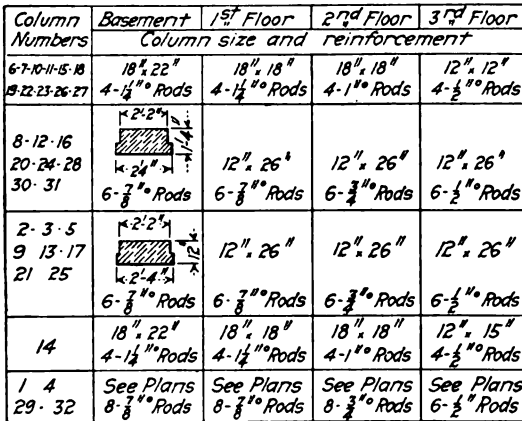 Column Numbers
Basement
1st Floor
2nd Floor
3rd Floor
Column size and reinforcement
6-7-10-11-15-18
19-22-23-26-27
18" x 22"
4-1¼"° Rods
18" x 18"
4-1¼"° Rods
18" x 18"
4-1"° Rods
12" x 12"
4-½"° Rods
8-12-16
20-24-28
30-31
2'-2"
1'-4"
2'4"
6-⅞"° Rods
12" x 26"
6-⅞"° Rods
12" x 26"
6-¾"° Rods
12" x 26"
6-½"° Rods
2-3-5
9 13-17
21 25
2'-2"
12"
2'-4"
6-⅞"° Rods
12" x 26"
6-⅞"° Rods
12" x 26"
6-¾"° Rods
12" x 26"
6-½"° Rods
14
18" x 22"
4-1¼"° Rods
18" x 18"
4-1¼"° Rods
18" x 18"
4-1"° Rods
12" x 15"
4-½"° Rods
1 4
29-32
See Plans
8-⅞"° Rods
See Plans
8-⅞"° Rods
See Plans
8-¾"° Rods
See Plans
6-½"° Rods